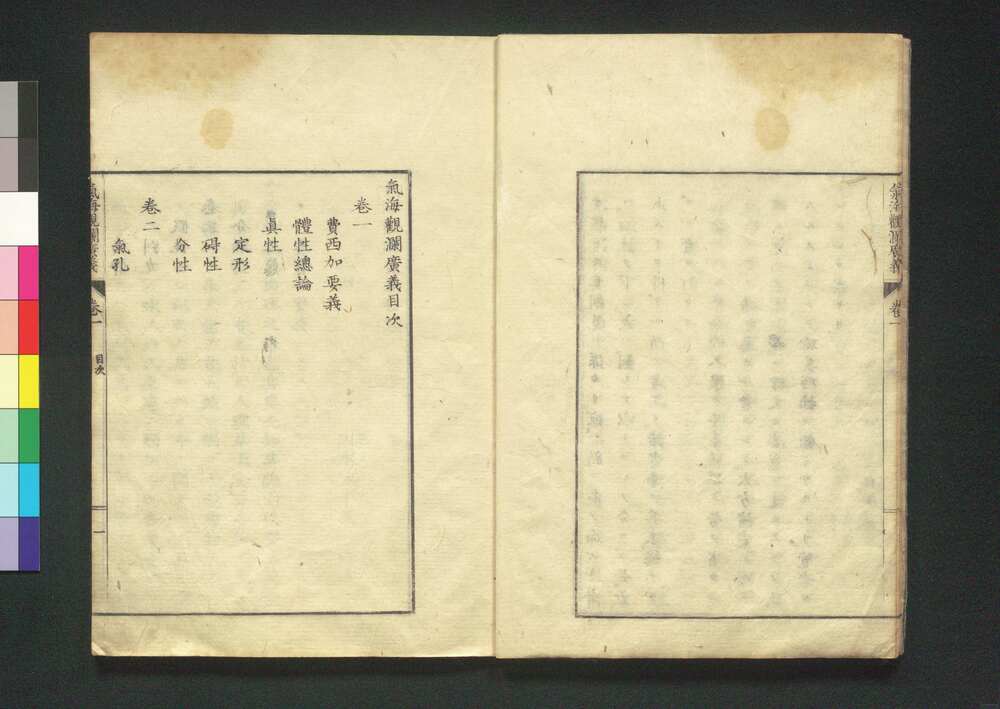 氣海觀瀾廣義
卷一
氣海觀瀾廣義目次
卷一
費西加要義
體性總論
眞性
定形
碍性
分性
卷二
氣孔
氣海觀瀾廣義
卷一
目次
一